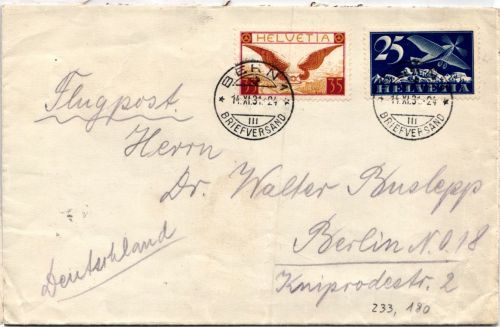 HELVETIA
35 35
25
HELVETIA
BERN 1
14.XI.31.-24
III
BRIEFVERSAND
14.XI.31.-24
III
BRIEFVERSAND
Flugpost.
Herrn
Dr. Walter Buslepp
Berlin N.O.18
Kniprodestr. 2
Deutschland
233, 180